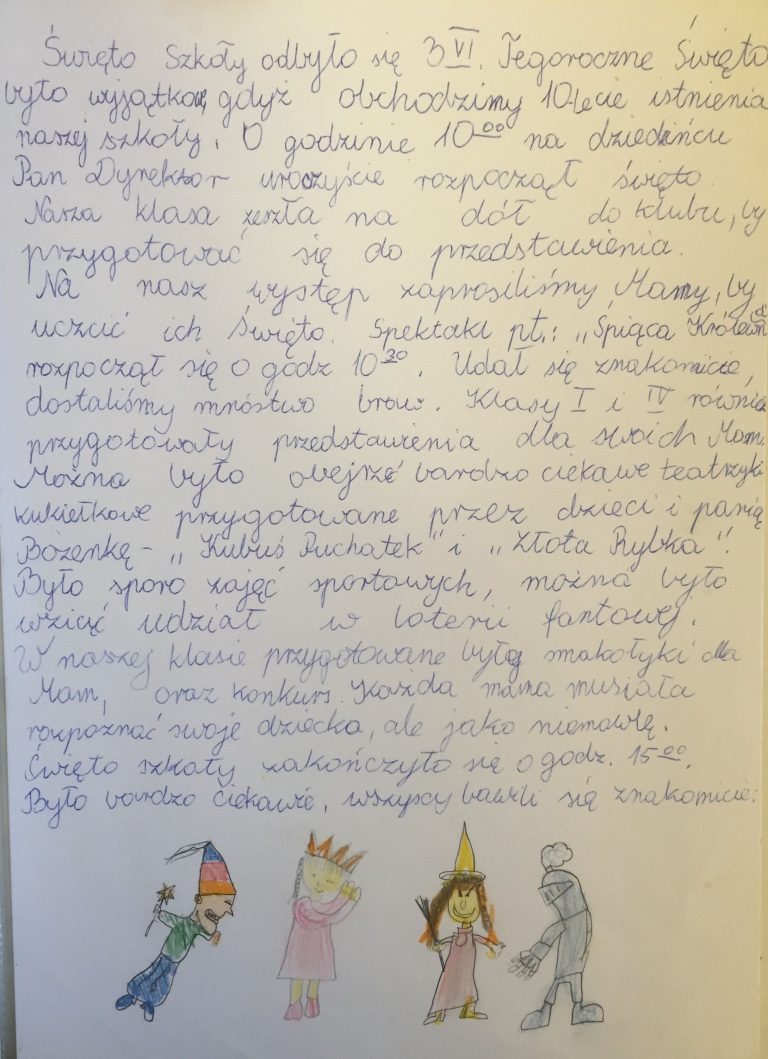 Święto Szkoły odbyło się 3 VI. Tegoroczne Święto
było wyjątkowe, gdyż obchodzimy 10-lecie istnienia
naszej szkoły. O godzinie 10 00 na dziedzińcu
Pan Dyrektor uroczyście rozpoczął święto.
Nasza klasa zeszła na dół do klubu, by
przygotować się do przedstawienia.
Na nasz występ zaprosiliśmy Mamy, by
uczcić ich Święto. Spektakl pt.: „Śpiąca Królewna"
rozpoczął się o godz 10 30. Udał się znakomicie,
dostaliśmy mnóstwo braw. Klasy I i IV również
przygotowały przedstawienia dla swoich Mam.
Można było obejrzeć bardzo ciekawe teatrzyki
kukiełkowe przygotowane przez dzieci i panią
Bożenkę - „Kubuś Puchatek" i „Złota Rybka".
Było sporo zajęć sportowych, można było
wziąć udział w loterii fantowej.
W naszej klasie przygotowane były smakołyki dla
Mam, oraz konkurs. Każda mama musiała
rozpoznać swoje dziecko, ale jako niemowlę.
Święto szkoły zakończyło się o godz. 15 00.
Było bardzo ciekawie, wszyscy bawili się znakomicie.